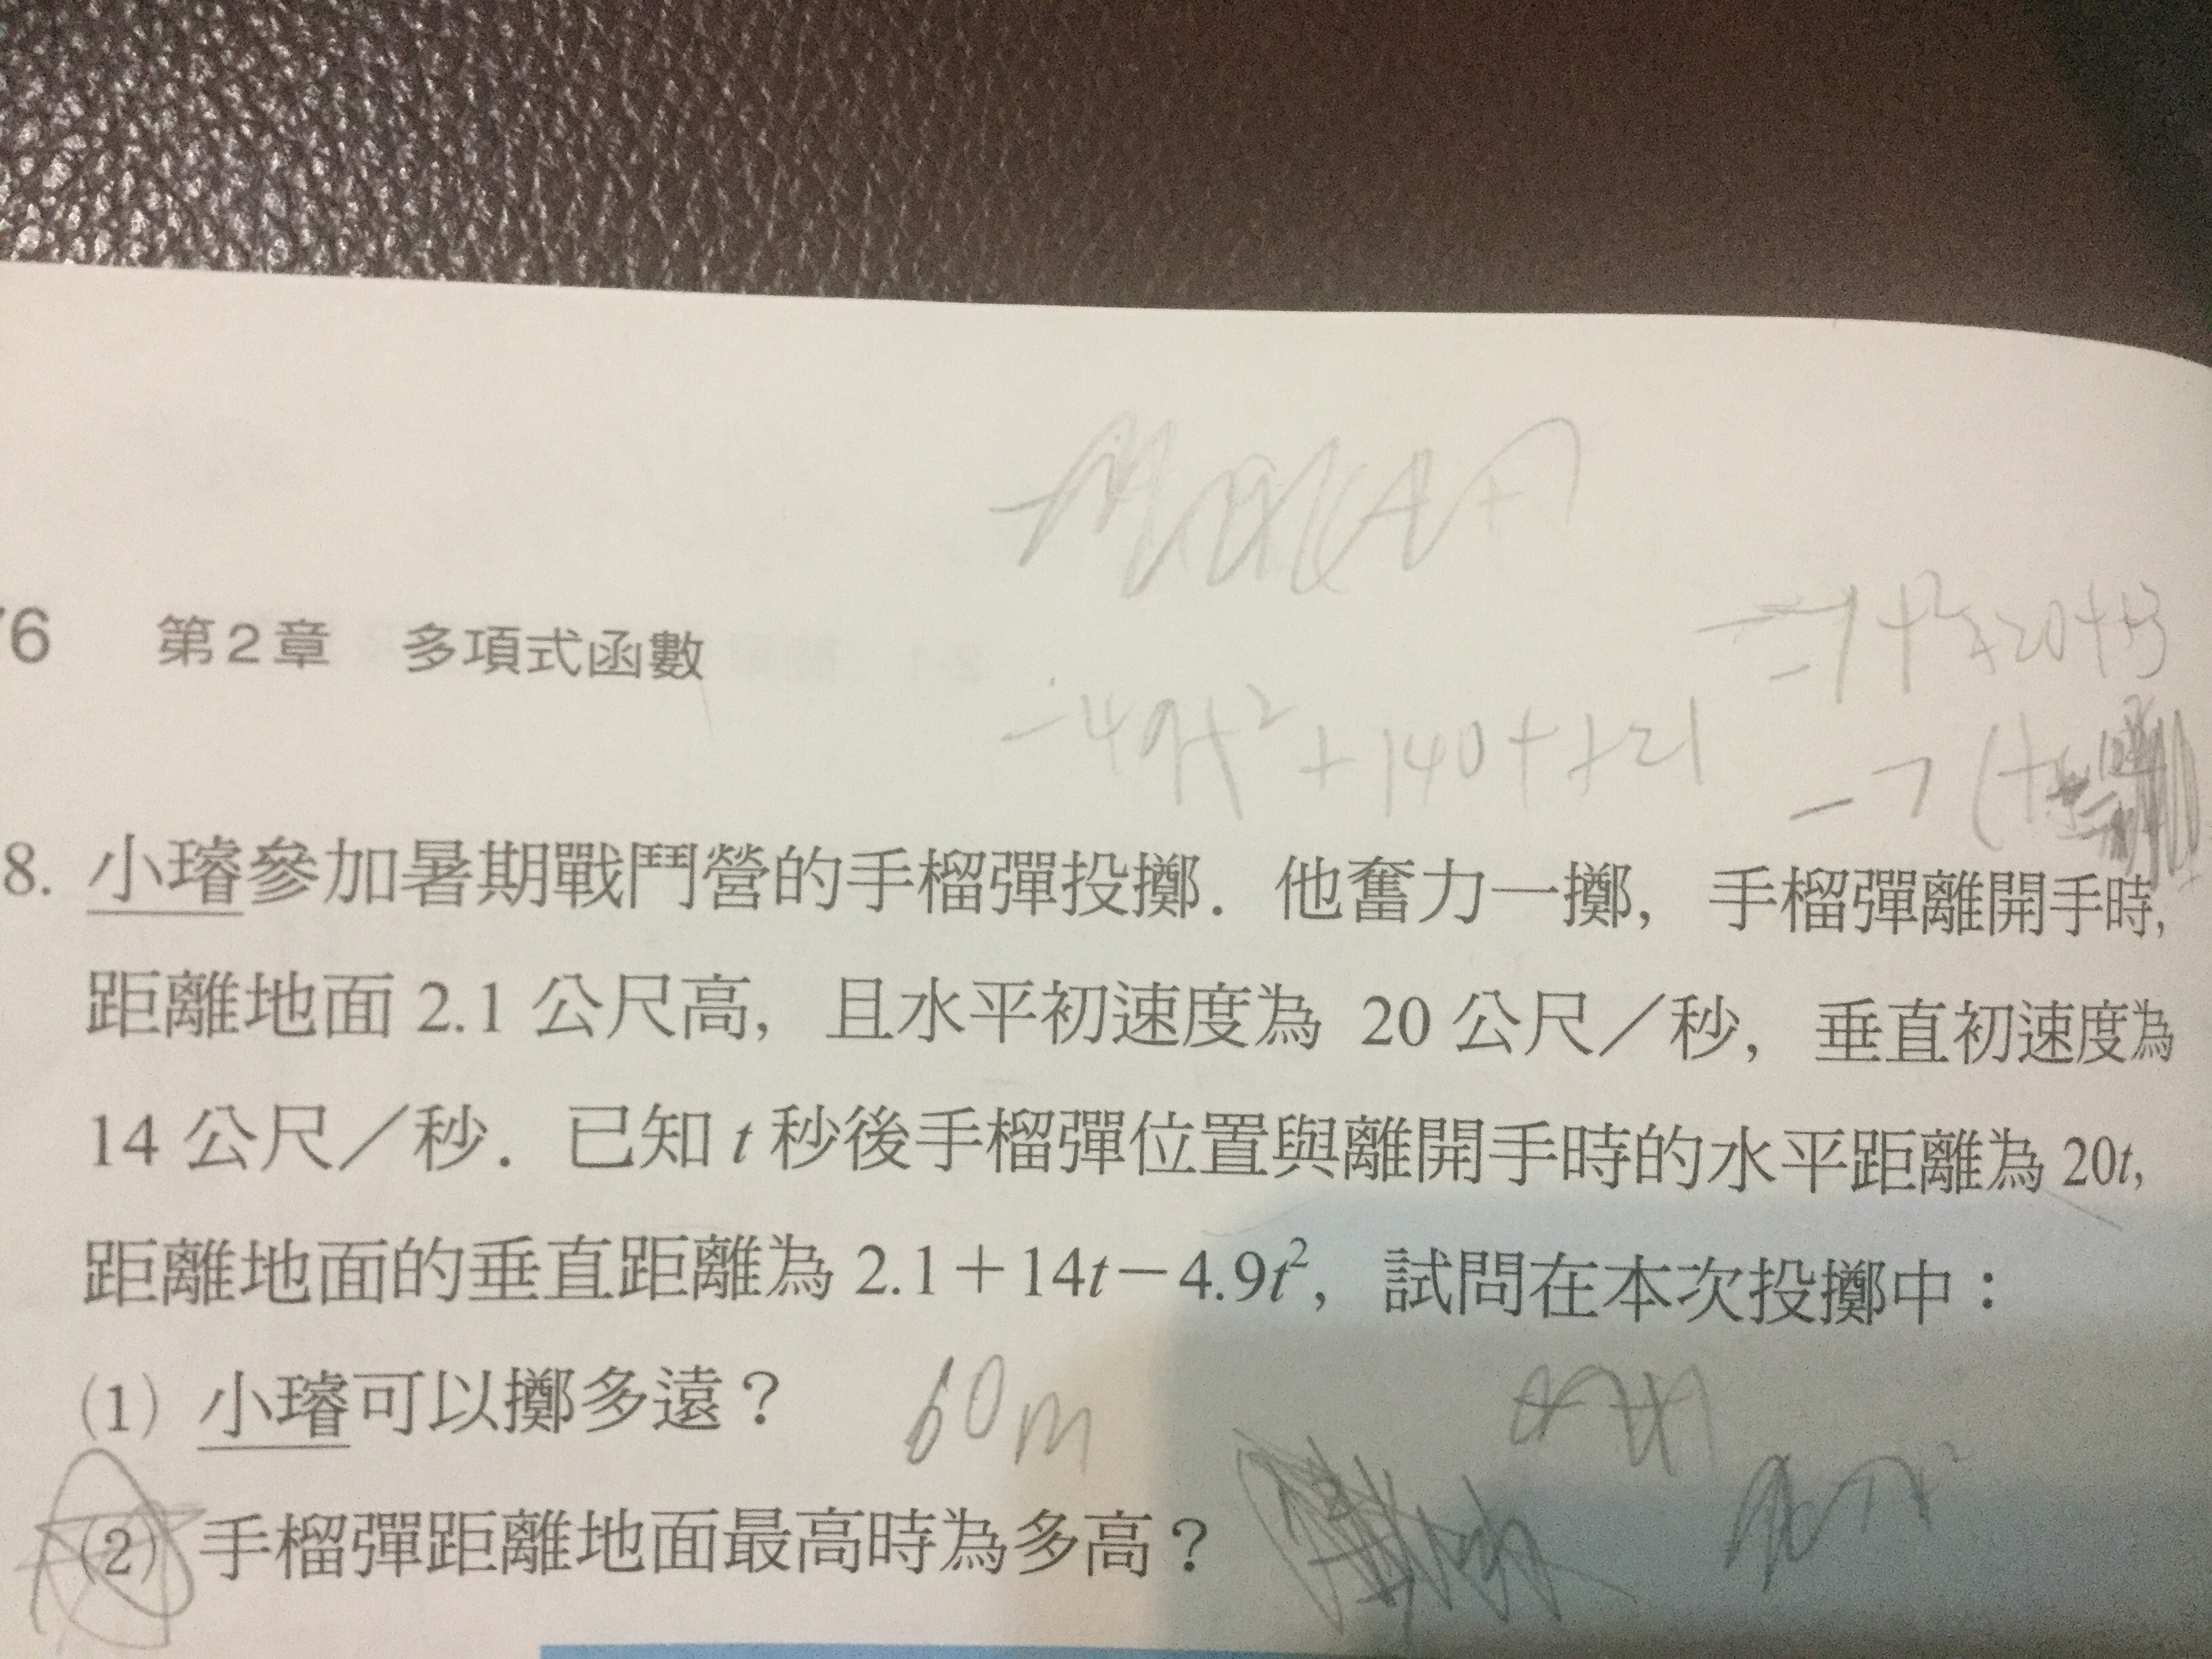 76 第2章 多項式函數
-49t²+140t+21
-7t²+20t+3
8. 小璿參加暑期戰鬥營的手榴彈投擲．他奮力一擲，手榴彈離開手時，
距離地面 2.1 公尺高，且水平初速度為 20 公尺／秒，垂直初速度為
14 公尺／秒．已知 t 秒後手榴彈位置與離開手時的水平距離為 20t，
距離地面的垂直距離為 2.1＋14t－4.9t²，試問在本次投擲中：
(1) 小璿可以擲多遠？ 60m
(2) 手榴彈距離地面最高時為多高？